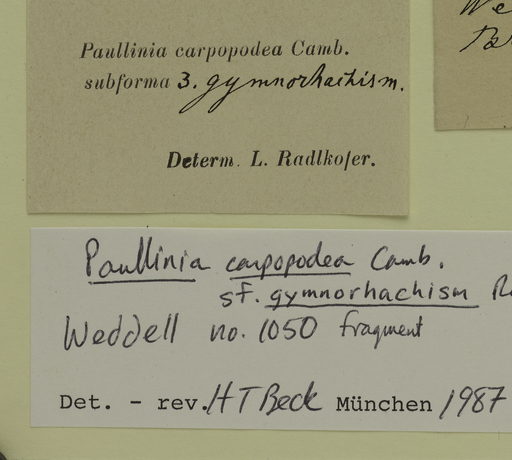 Paullinia carpopodea Camb.
subforma 3. gymnorhachism.
Determ. L. Radlkofer.
We
Paullinia carpopodea Camb.
sf. gymnorhachism
Weddell no. 1050 fragment
Det. - rev. HT Beck München 1987